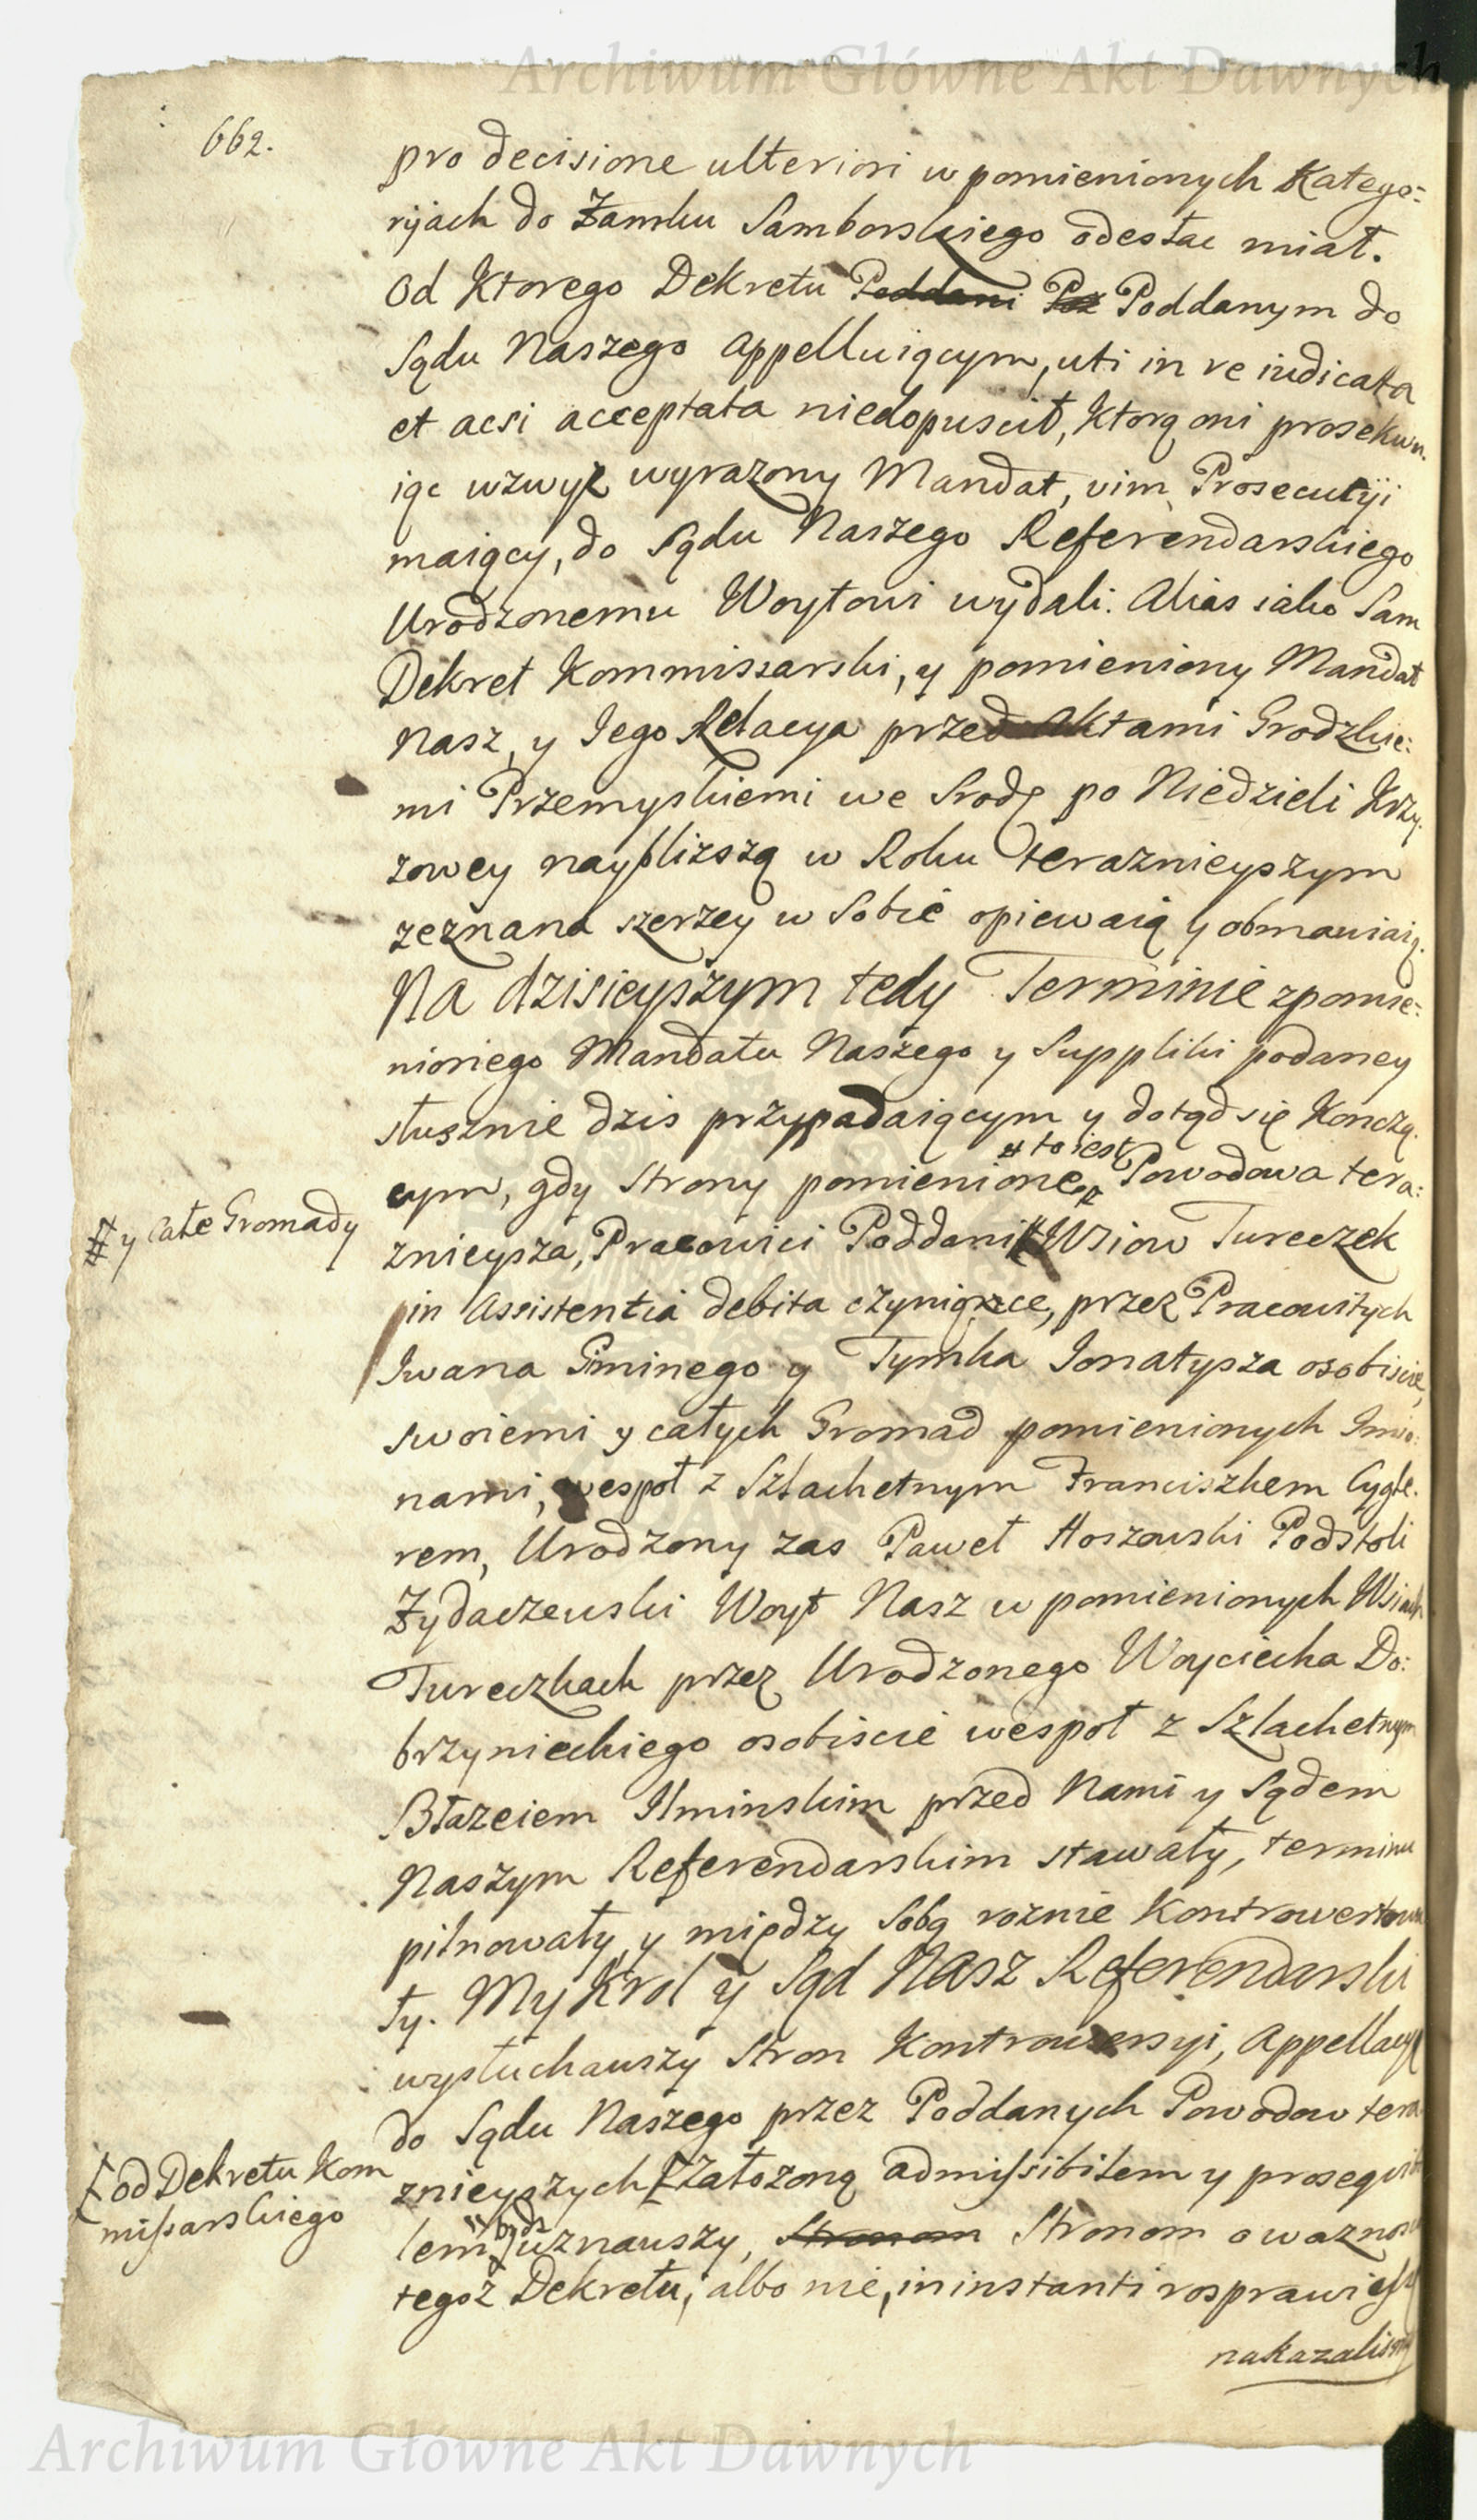 Archiwum Główne Akt Dawnych
662.
pro decisione ulteriori w pomienionych Katego=
ryjach do Zamku Samborskiego odesłac miał.
Od Ktorego Dekretu Poddani Poz Poddanym do
Sądu Naszego appelluiącym, uti in re iudicata
et acsi acceptata niedopuscił, Ktorą oni prosekwu=
iąc wzwyż wyrazony Mandat, vim Prosecutyi
maiący, do Sądu Naszego Referendarskiego
Urodzonemu Woytowi wydali. Alias iako Sam
Dekret Kommissarski, y pomieniony Mandat
Nasz, y Jego Relacya przed Aktami Grodzkie=
mi Przemyskiemi we Srodę po Niedzieli Krzy=
zowey naybliższą w Roku teraznieyszym
zeznana szerzey w Sobie opiewaią y obmawiaią.
Na dzisieyszym tedy Terminie zpomie=
nioniego Mandatu Naszego y Suppliki podaney
słusznie dzis przypadaiącym y dotąd się Konczą=
cym, gdy Strony pomienione # to iest Powodowa tera=
# y całe Gromady
znieysza, Pracowici Poddani # Wsiow Tureczek
in Assistentia debita czyniące, przez Pracowitych
Iwana Siminego y Tymka Jonatysza osobiscie,
swoiemi y całych Gromad pomienionych Imio=
nami, wespoł z Szlachetnym Franciszkem Cygle=
rem, Urodzony zas Paweł Hoszowski Podstoli
Zydaczewski Woyt Nasz w pomienionych Wsiach
Tureczkach przez Urodzonego Woyciecha Do=
brzynieckiego osobiscie wespoł z Szlachetnym
Błazeiem Ilminskim przed Nami y Sądem
Naszym Referendarskim stawały, terminu
pilnowały, y między Sobą roznie Kontrowertowa
ły. My Krol y Sąd Nasz Referendarski
wysłuchawszy Stron Kontrowersyi, Appellacyę
do Sądu Naszego przez Poddanych Powodow tera
[od Dekretu Kom
missarskiego
znieyszych [Załozoną admissibilem y prosequibi
lem bydz uznawszy, Stronom Stronom o waznosci
tegoż Dekretu, albo nie, in instanti rosprawić się
nakazalismy
Archiwum Główne Akt Dawnych